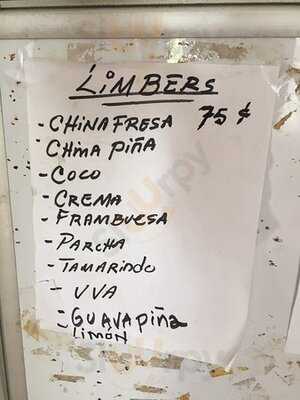 LIMBERS
- CHINA FRESA 75 ¢
- CHINA PIÑA
- COCO
- CREMA
- FRAMBUESA
- PARCHA
- TAMARINDO
- UVA
- GUAVA PIÑA
LIMÓN